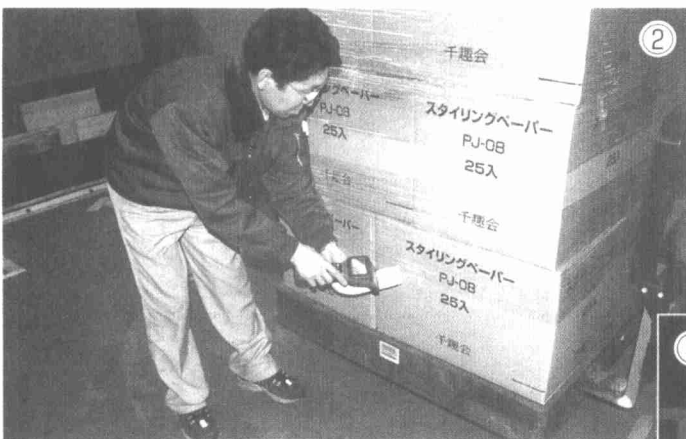 ②
千趣会
スタイリングペーパー
PJ-08
25入
グペーパー
PJ-08
25入
千趣会
千趣会
ペーパー
スタイリングペーパー
PJ-08
25入
千趣会